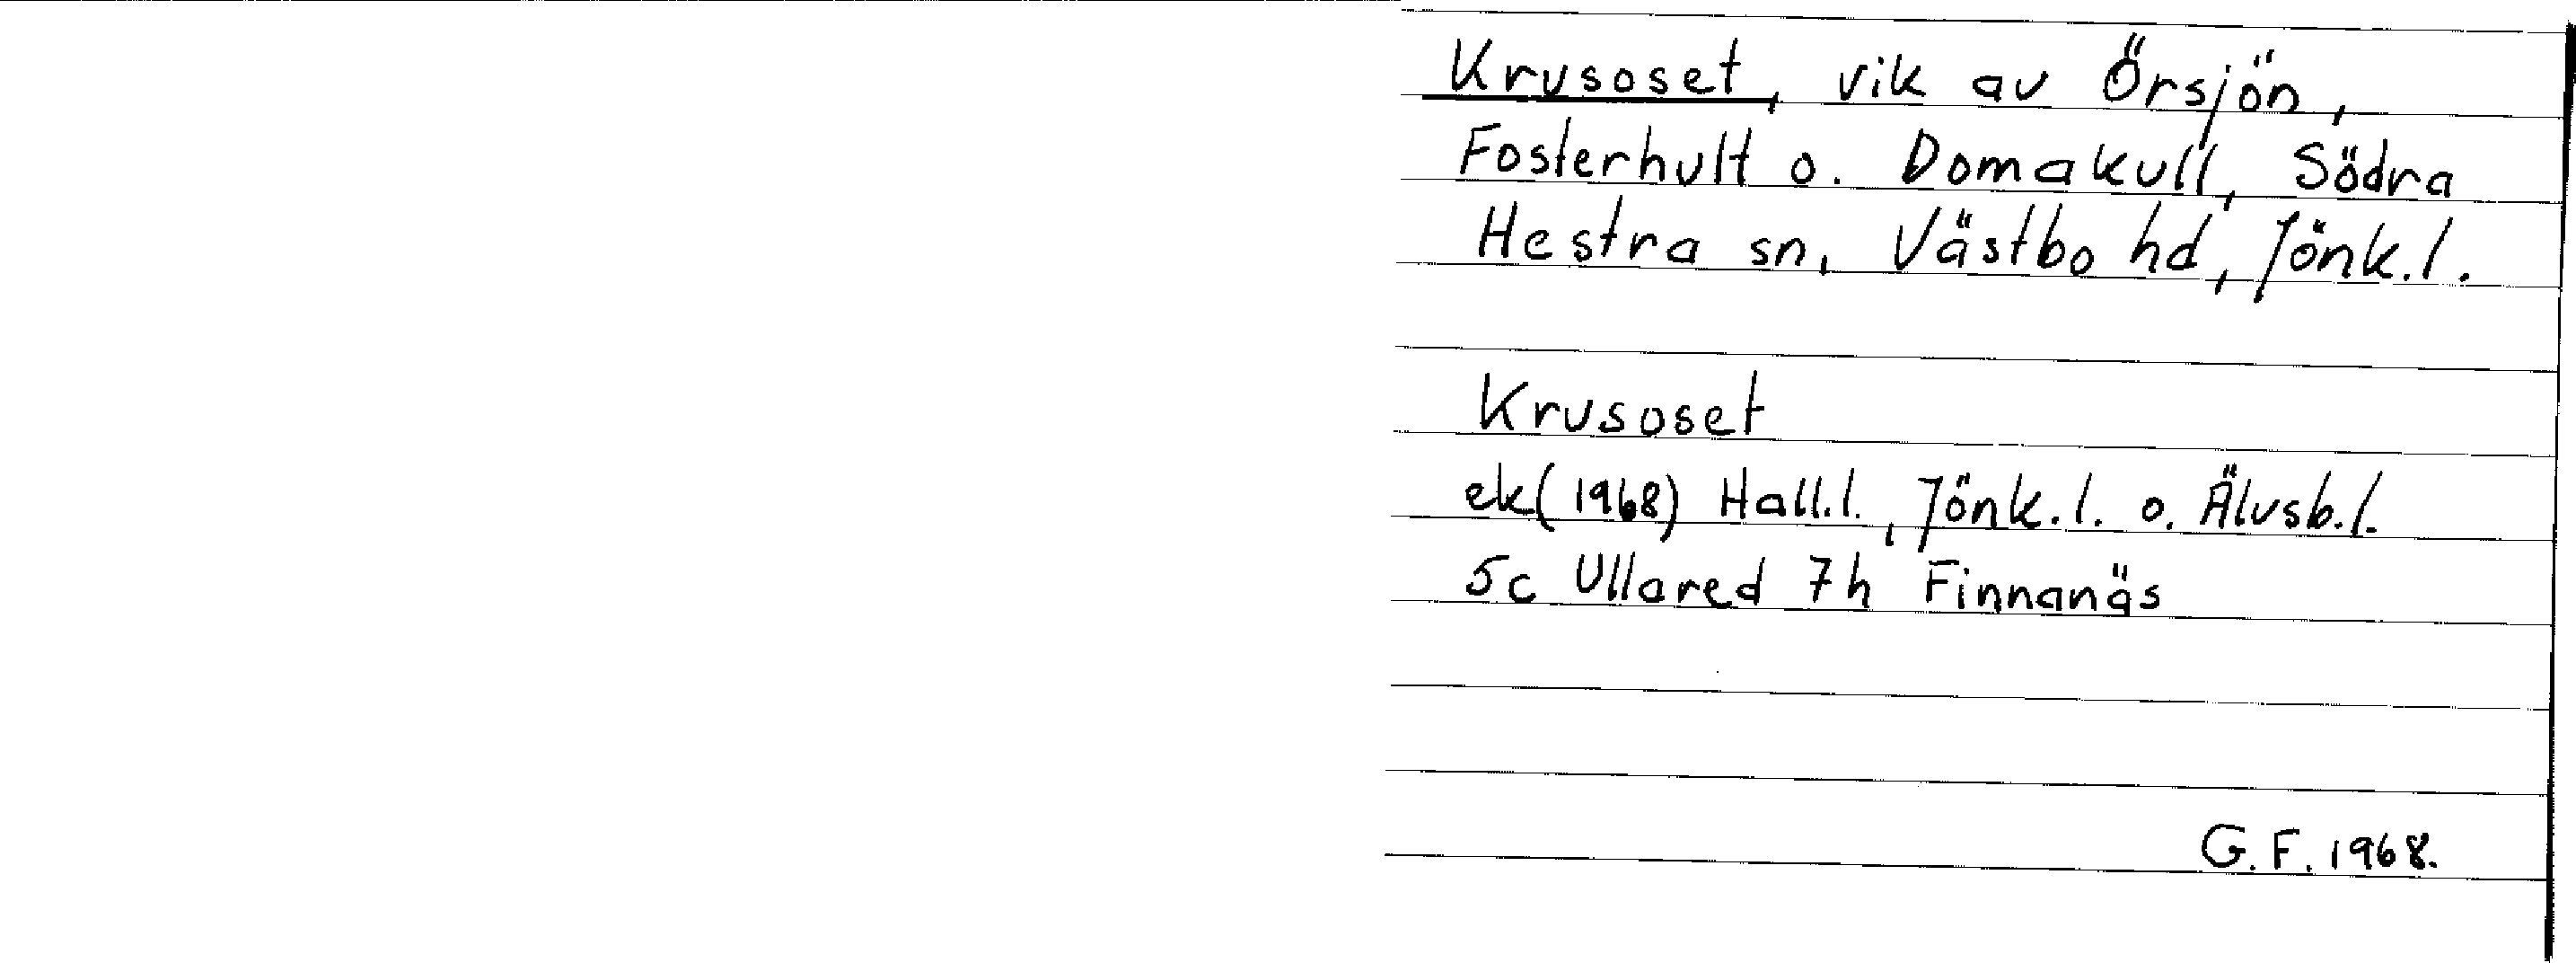 Krusoset, vik av Örsjön,
Fosterhult o. Domakull, Södra
Hestra sn, Västbo hd, Jönk.l.
Krusoset
ek(1968) Hall.l., Jönk.l. o. Älvsb.l.
5c Ullared 7h Finnanäs
G.F. 1968.